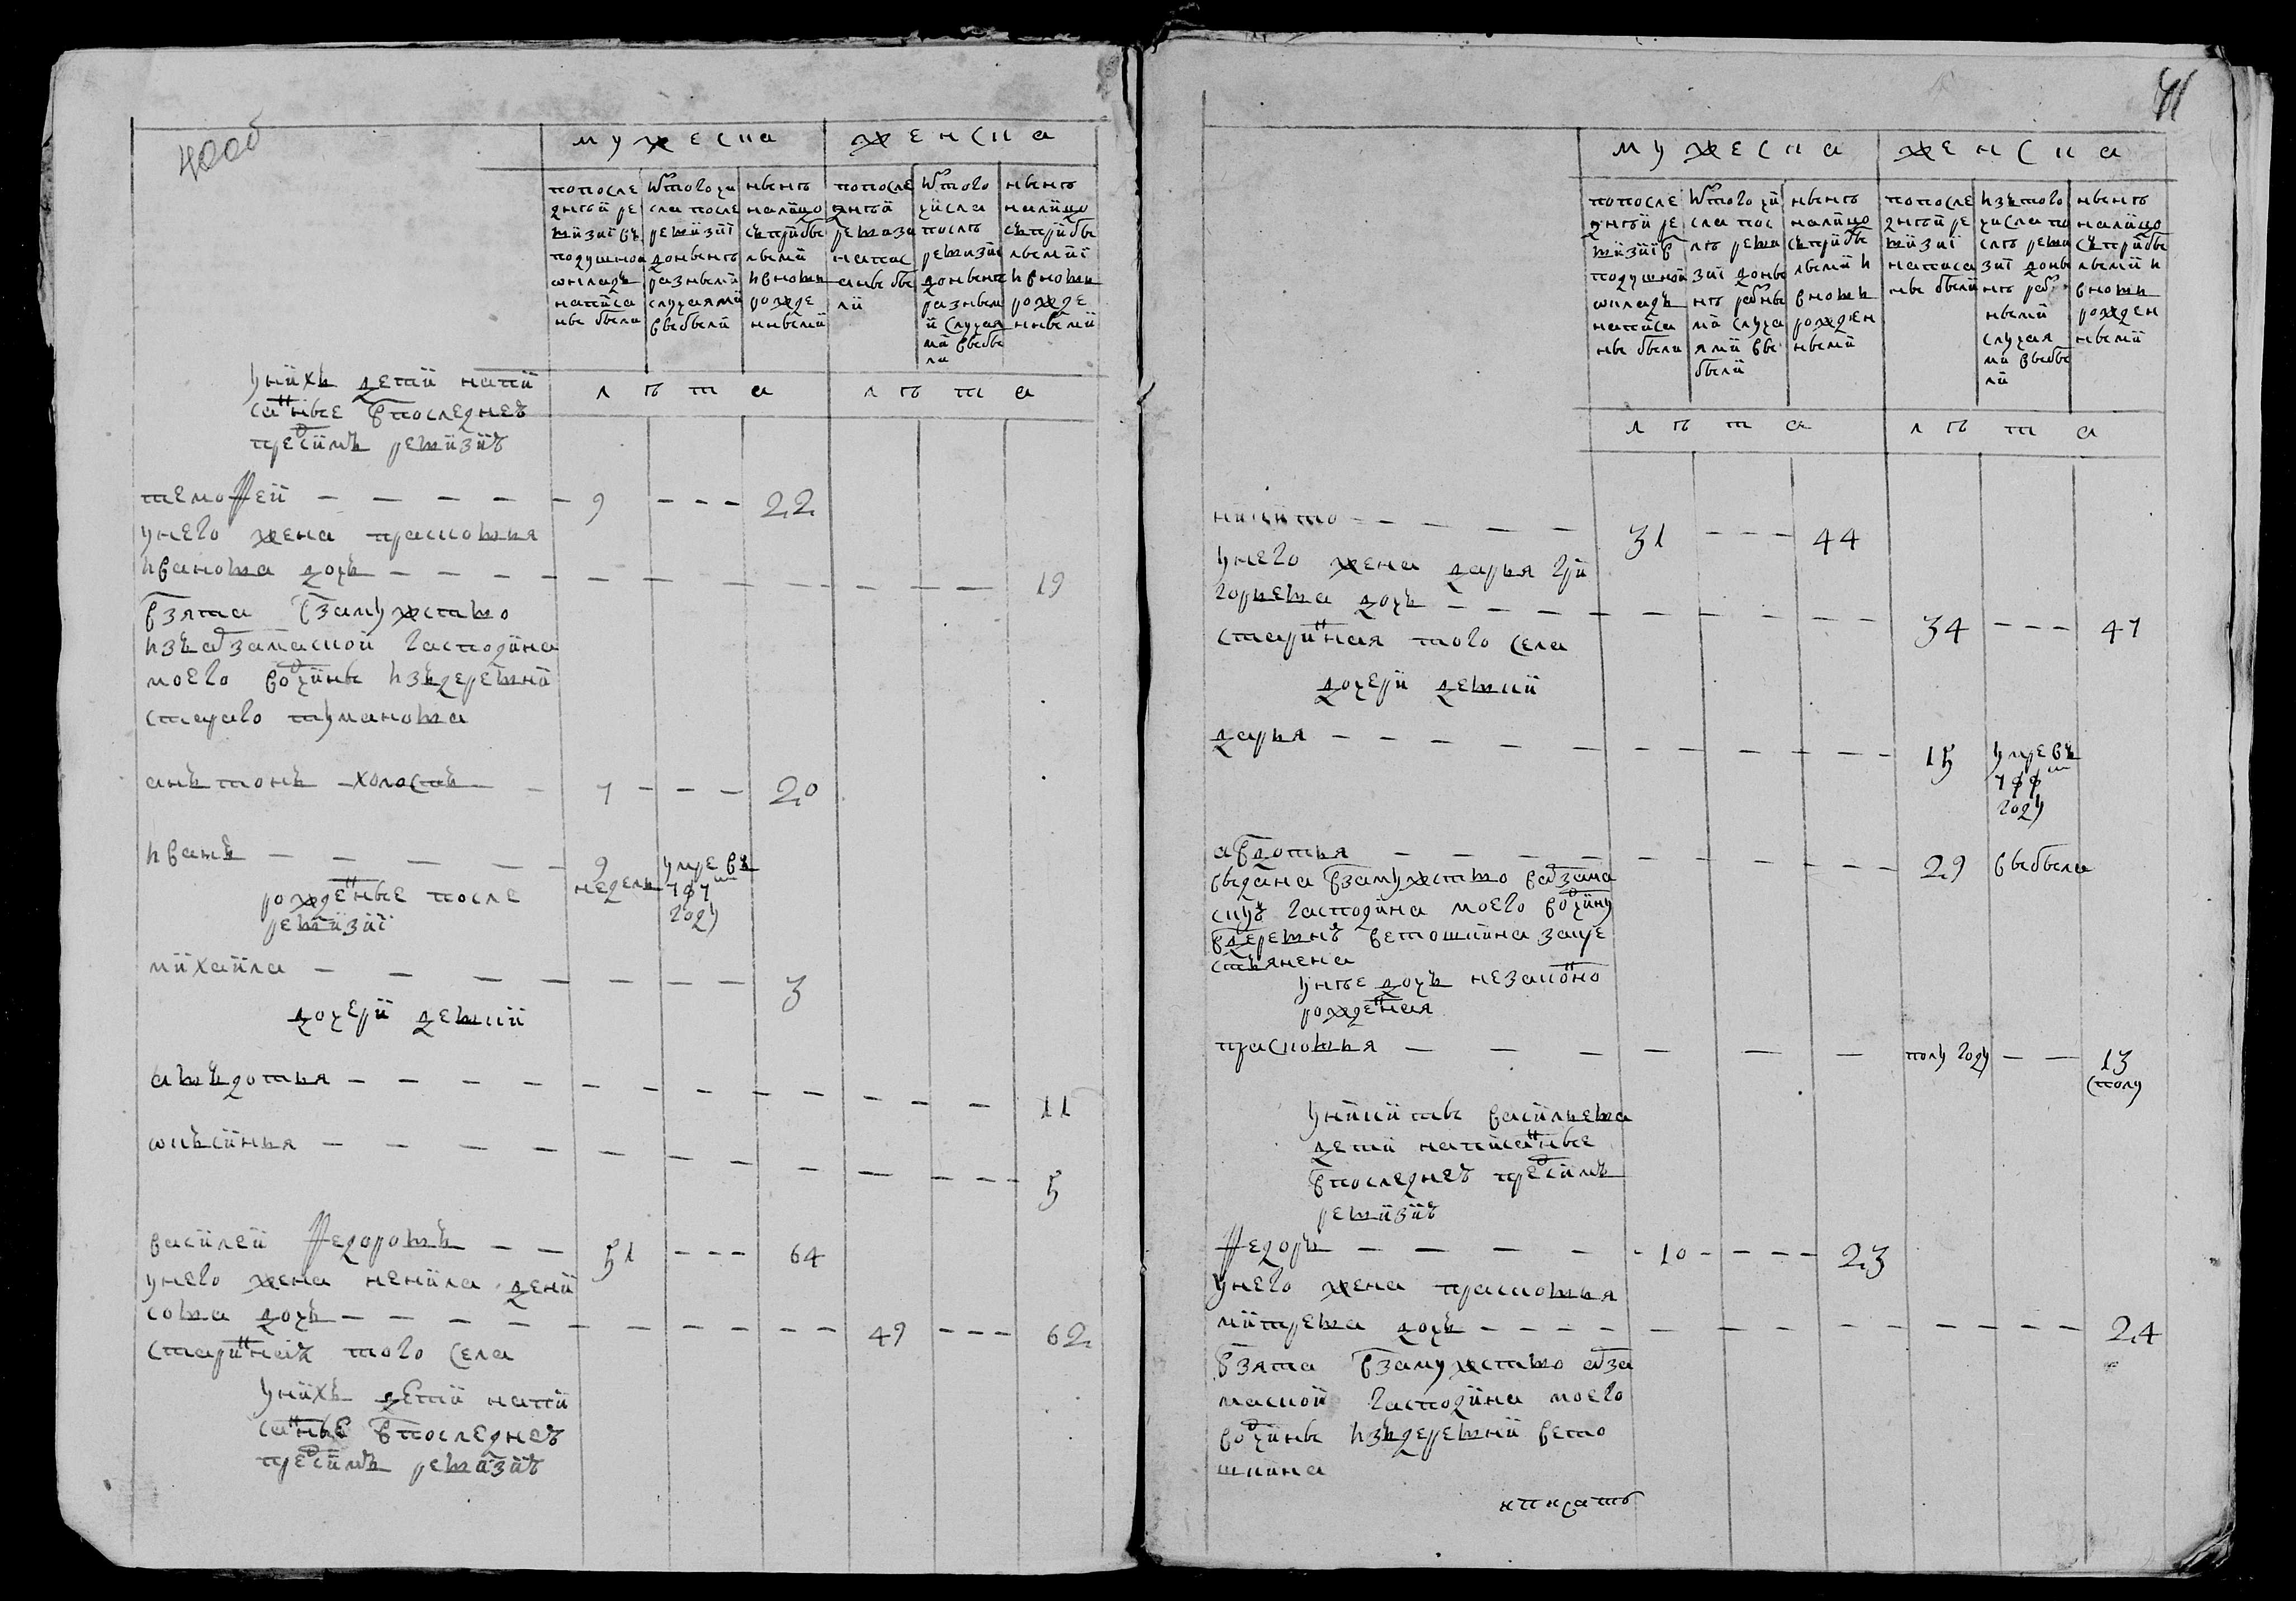 40об
мужеска
женска
попосле
днѣй ре
визиї въ
подушнои
окладъ
написа
ны были
Ѿтого чи
сла после
ревизиї
донынѣ
разными
случаями
выбыли
нынѣ
налицо
съприбы
лыми
ивновь
рожде
нными
попосле
днѣй
ревизи
напис
аны бы
ли
Ѿтого
числа
послѣ
ревизиї
донынѣ
разным
и случая
ми выбы
ли
нынѣ
налицо
съприбы
лыми
ивновь
рожде
нными
лѣта
лѣта
унихъ дети напи
санные впоследнеѣ
предсимъ ревизиѣ
темофеи 9 22
унего жена прасковья
иванова дочь 19
взята взамужство
изъарзамаской гасподина
моего вочины издеревни
старого туманова
анътонъ холостъ 7 20
иванъ 9 недель умре въ 797м году
рожденные после
ревизиї
михаила 3
дочери девки
авъдотья 11
окъсинья 5
василеи федоровъ 51 64
унего жена ненила дени
сова дочь 49 62
стариннаѣ того села
унихъ дети напи
санные впоследнеѣ
предсимъ ревизиѣ
41
мужеска
женска
попосле
днѣй ре
визиї в
подушной
окладъ
написа
ны были
Ѿтого чи
сла пос
лѣ реви
зиї доны
нѣ разны
ми случа
ями вы
были
нынѣ
налицо
съприбы
лыми и
вновь
рожден
ными
попосле
днѣй ре
визиї
написа
ны были
изътого
числа по
слѣ реви
зиї доны
нѣ раз
ными
случая
ми выбы
ли
нынѣ
налицо
съприбы
лыми и
вновь
рожден
ными
лѣта
лѣта
никито 31 44
унего жена дарья гри
горьева дочь 34 47
старинная того села
дочери девки
дарья 15 умре въ 799м году
авдотья 29 выбыла
выдана взамужство варзама
скуѣ гасподина моего вочину
вдеревнѣ ветошкина закре
стьянена
унѣе дочь незаконо
рожденая
прасковья полу году 13 сполу
уникиты васильева
дети написанные
впоследнеѣ предсимъ
ревизиѣ
федоръ 10 23
унего жена прасковья
митрева дочь 24
взята взамужство арза
маской гасподина моего
вочины издеревни вето
шкина